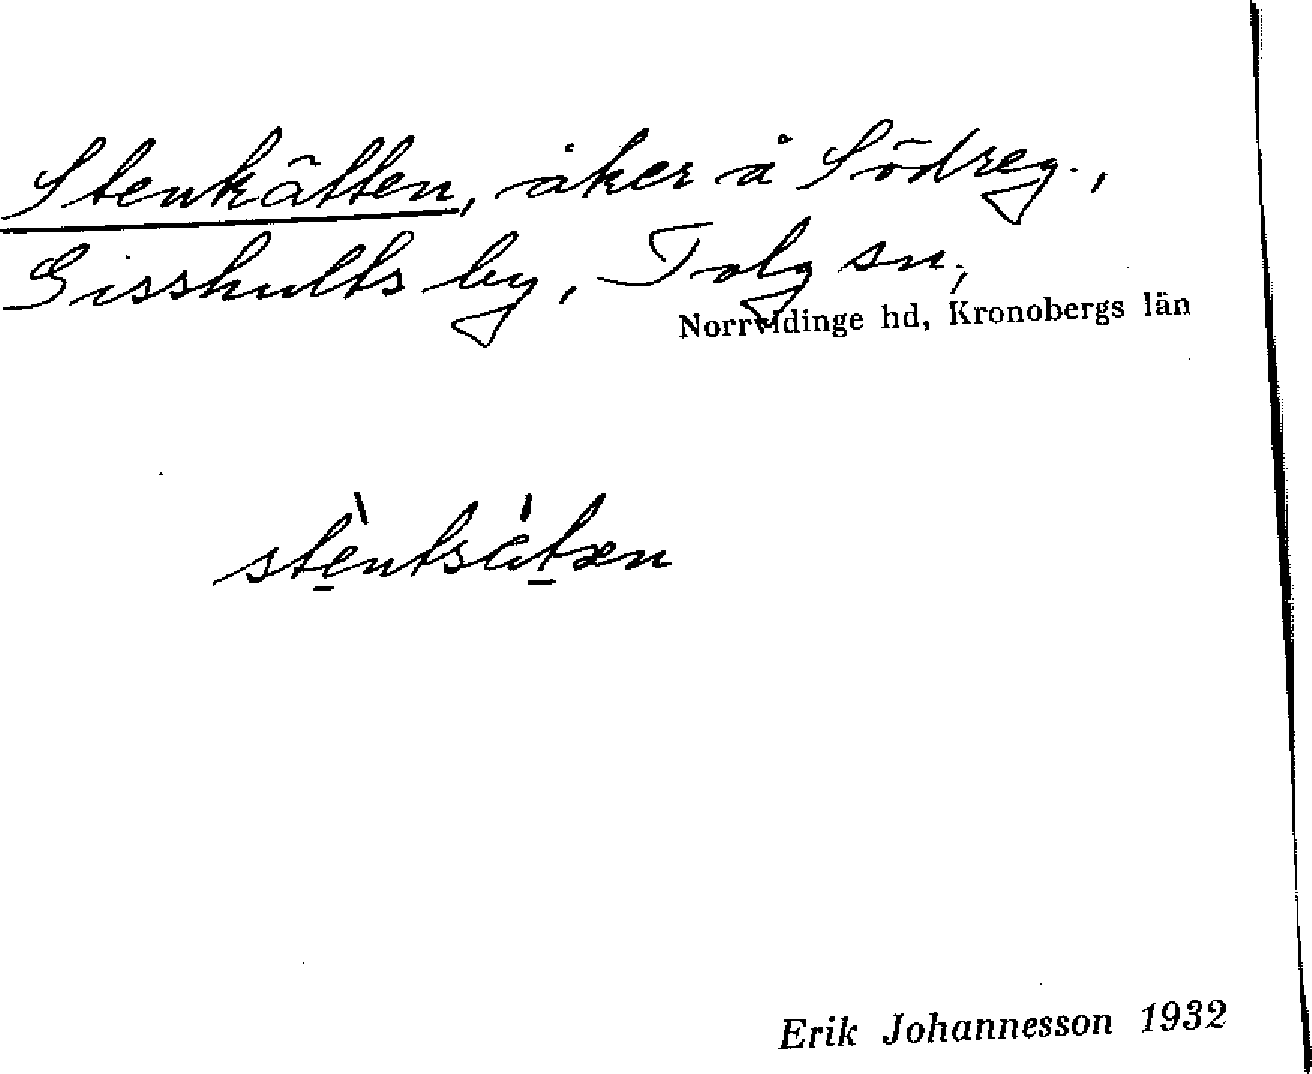 Stenkätten, åker å Södreg.,
Gisshults by, Tolg sn,
Norrvidinge hd, Kronobergs län
Erik Johannesson 1932